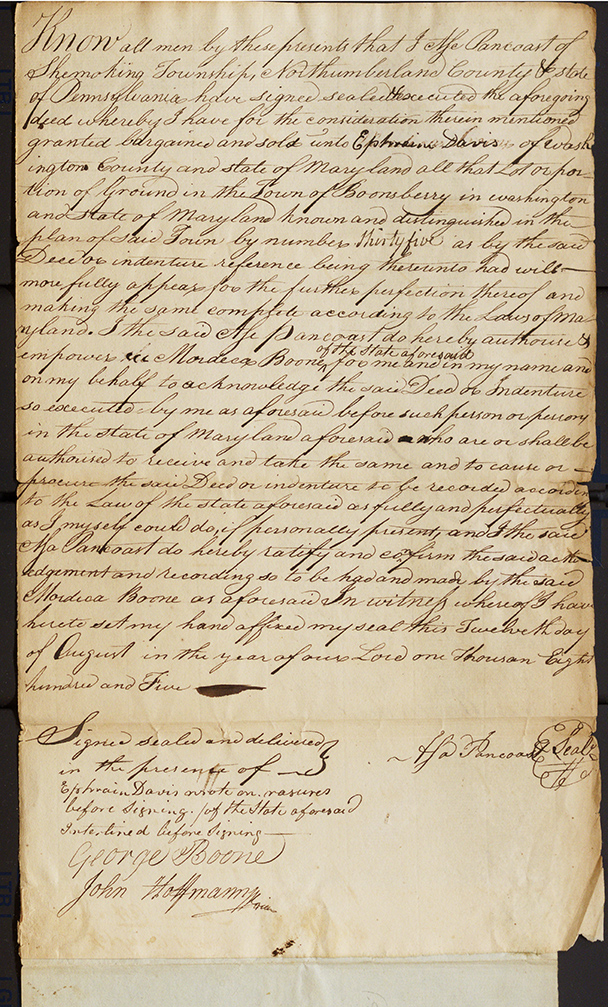 Know all men by these presents that I Asa Pancoast of
Shemoking Township, Northumberland County & state
of Pennsylvania have signed sealed & executed the aforegoing
deed whereby I have for the consideration therein mentioned
granted bargained and sold unto Ephraim Davis of Wash
ington County and state of Maryland all that Lot or por-
tion of Ground in the Town of Boonsberry in washington
and State of Maryland known and distinguished in the
plan of said Town by number thirty five as by the said
Deed or indenture reference being thereunto had will
more fully appear for the further perfection thereof and
making the same complete according to the Laws of Ma-
ryland. I the said Asa Pancoast do hereby authouse &
of the State aforesaid
empower Mordeca Boone for me and in my name and
on my behalf to acknowledge the said Deed or Indenture
so executed by me as aforesaid before such person or persons
in the state of Maryland aforesaid who are or shall be
authorised to receive and take the same and to cause or
procure the said Deed or indenture to be recorded accordin
to the Law of the state aforesaid as fully and perfectually
as I myself could do, if personally present, and I the said
Asa Pancoast do hereby ratify and confirm the said ackno
edgement and recording so to be had and made by the said
Mordeca Boone as aforesaid In witness whereof I have
hereto set my hand affixed my seal this Twelveth day
of August in the year of our Lord one Thousan Eight
hundred and Five
Signed sealed and delivered
in the presence of
Asa Pancoast Seal
Ephraim Davis wrote on rasures
before signing. / of the State aforesaid
Interlined before signing
George Boone
John Hoffmann